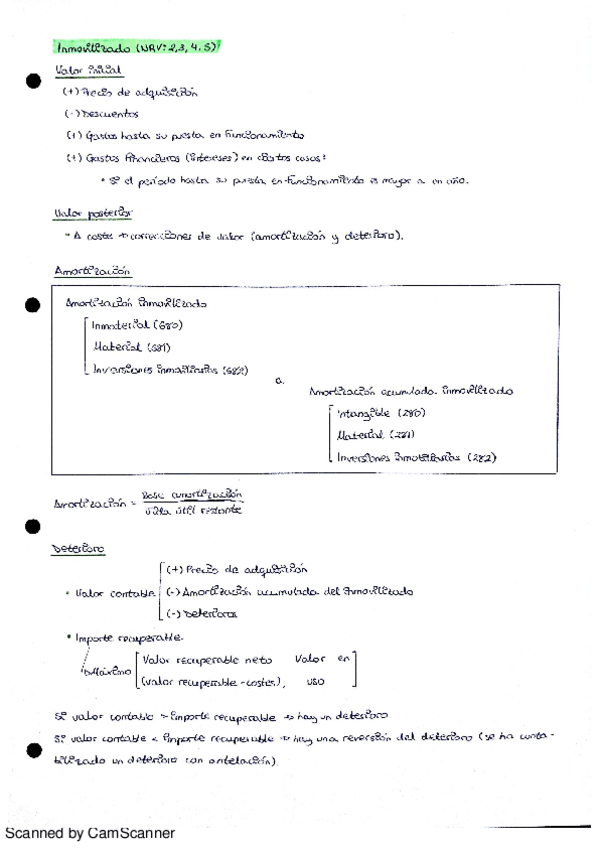 Inmovilizado (NRV: 2,3, 4. 5)
Valor inicial
(+) Precio de adquisición
(-) Descuentos
(+) Gastos hasta su puesta en funcionamiento
(+) Gastos financieros (intereses) en ciertos casos:
• Si el período hasta su puesta en funcionamiento es mayor a un año.
Valor posterior
- A coste → correcciones de valor (amortización y deterioro).
Amortización
Amortización inmovilizado
Inmaterial (680)
Material (681)
Inversiones inmobiliarias (682)
a.
Amortización acumulada. inmovilizado
Intangible (280)
Material (281)
Inversiones inmobiliarias (282)
Amortización = Base amortización
vida útil restante
Deterioro
(+) Precio de adquisición
• Valor contable (-) Amortización acumulada del Inmovilizado
(-) Deterioros
• Importe recuperable.
Máximo Valor recuperable neto Valor en
(valor recuperable - costes), uso
Si valor contable > importe recuperable → hay un deterioro
Si valor contable < importe recuperable → hay una reversión del deterioro (se ha conta-
bilizado un deterioro con antelación).
Scanned by CamScanner